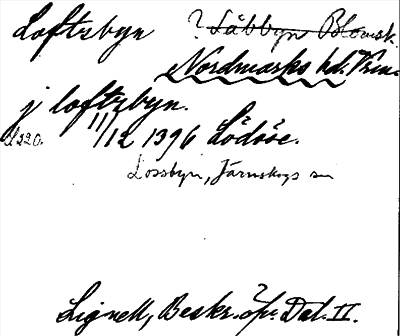 Loftsbyn ? Låbbyn Blomsk.
Nordmarks hd. Vrm.
j loftzbyn.
11/12 1396 Lödöse.
Lossbyn, Järnskogs sn
Lignell, Beskr. öfv. Dal. II.